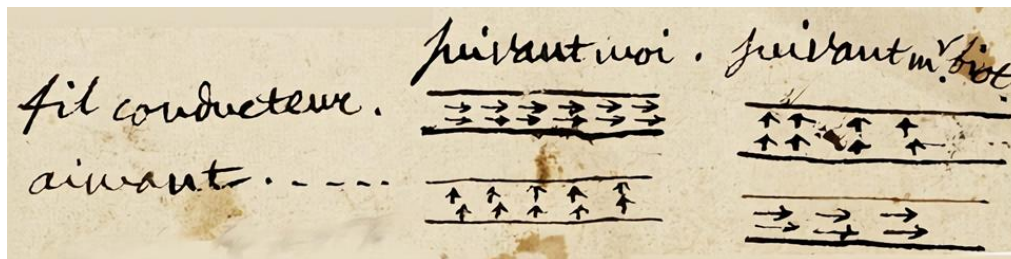 suivant moi. suivant mr. biot.
fil conducteur.
aimant . . - - - -